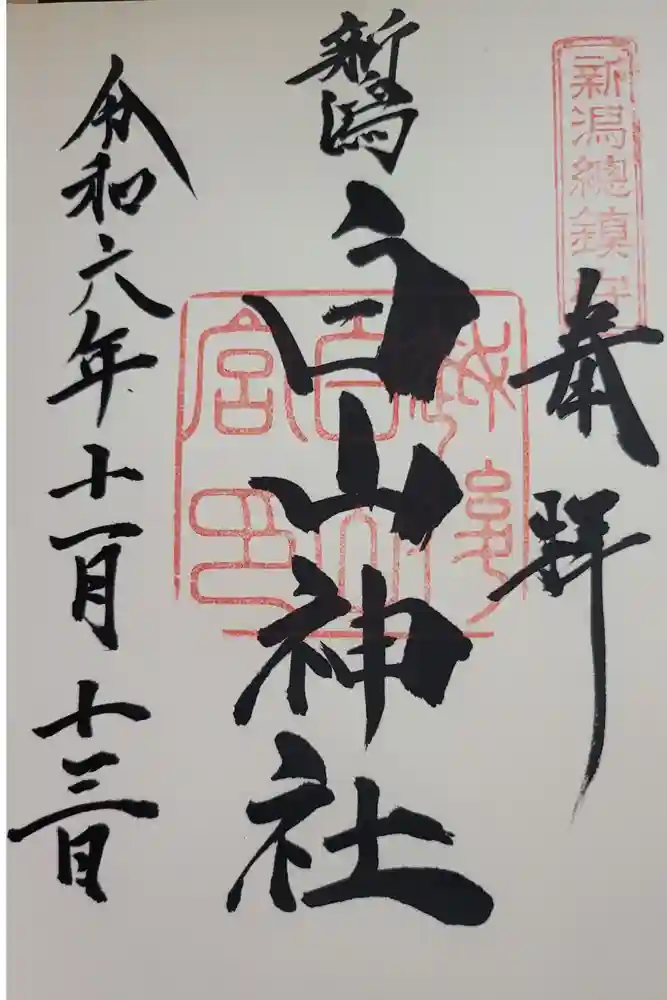 新潟總鎮守
奉拝
新潟
白山神社
令和六年十一月十三日